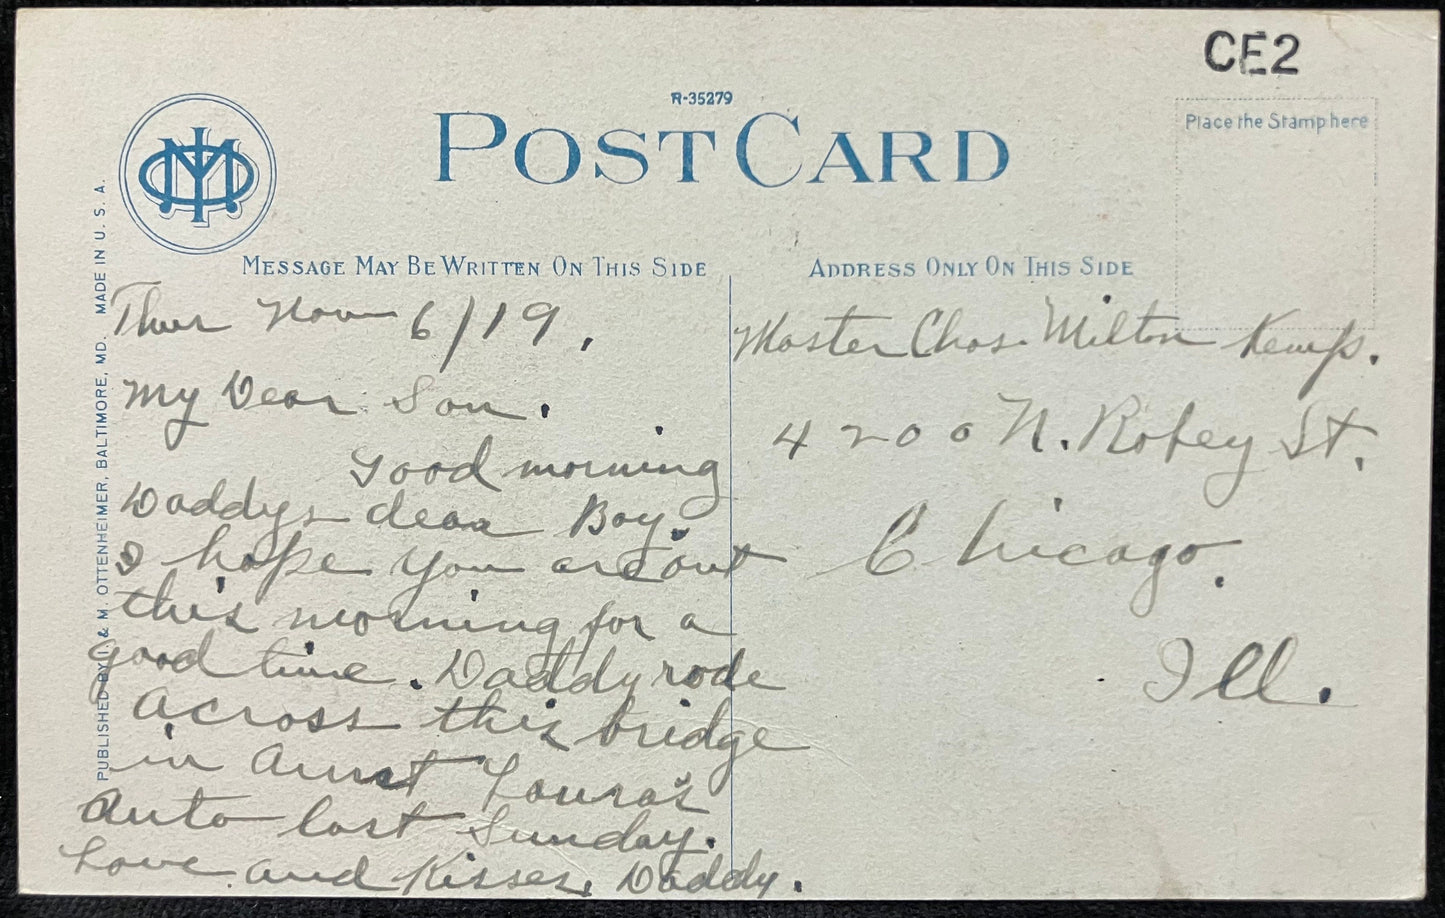 CE2
R-35279
POST CARD
Place the Stamp here
MESSAGE MAY BE WRITTEN ON THIS SIDE
ADDRESS ONLY ON THIS SIDE
PUBLISHED BY I. & M. OTTENHEIMER, BALTIMORE, MD. MADE IN U. S. A.
Thur Nov 6/19.
My Dear Son.
Good morning
Daddys dear Boy.
I hope you are out
this morning for a
good time. Daddy rode
across this bridge
in Aunt Louras
Auto last Sunday.
Love and Kisses. Daddy.
Master Chas. Milton Kemp.
4200 N. Robey St.
Chicago.
Ill.